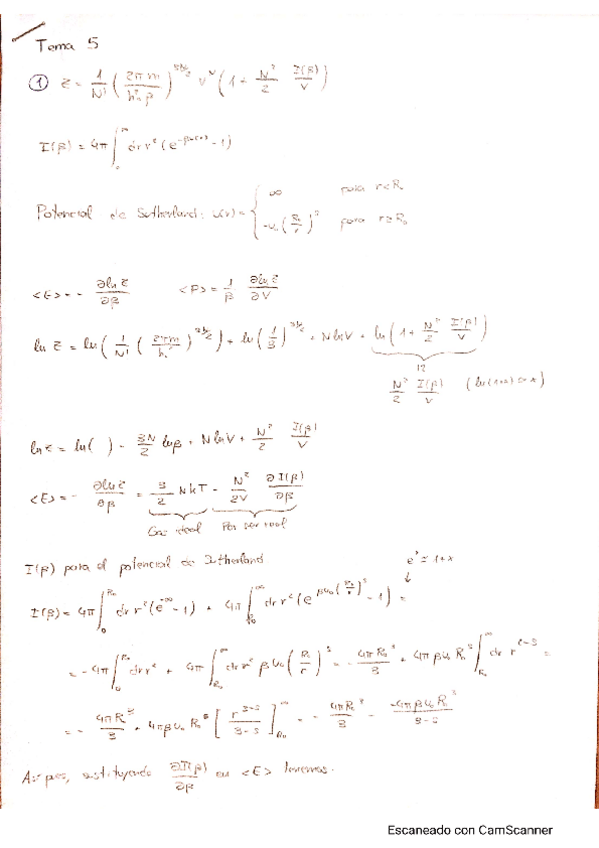 Tema 5
① Z = 1/N! (2πm/h²β)^{3N/2} V^N (1 + N²/2 I(β)/V)
I(β) = 4π ∫_0^∞ dr r² (e^{-βu(r)} - 1)
Potencial de Sutherland: u(r) = { ∞ para r < R₀
-u₀ (R₀/r)^s para r ≥ R₀
<E> = - ∂lnZ/∂β <P> = 1/β ∂lnZ/∂V
ln Z = ln(1/N! (2πm/h²)^{3N/2}) + ln(1/β)^{3N/2} + N ln V + ln(1 + N²/2 I(β)/V)
N²/2 I(β)/V (ln(1+x) ≃ x)
ln Z = ln( ) - 3N/2 ln β + N ln V + N²/2 I(β)/V
<E> = - ∂lnZ/∂β = 3/2 NkT - N²/2V ∂I(β)/∂β
Gas ideal Por ser real
I(β) para el potencial de Sutherland
e^x ≃ 1+x
I(β) = 4π ∫_0^{R₀} dr r² (e^{-∞} - 1) + 4π ∫_{R₀}^∞ dr r² (e^{βu₀(R₀/r)^s} - 1) =
= -4π ∫_0^{R₀} dr r² + 4π ∫_{R₀}^∞ dr r² βu₀ (R₀/r)^s = - 4πR₀³/3 + 4πβu₀R₀^s ∫_{R₀}^∞ dr r^{2-s} =
= - 4πR₀³/3 + 4πβu₀R₀^s [r^{3-s}/3-s]_{R₀}^∞ = - 4πR₀³/3 - 4πβu₀R₀³/3-s
Así pues, sustituyendo ∂I(β)/∂β en <E> tenemos:
Escaneado con CamScanner